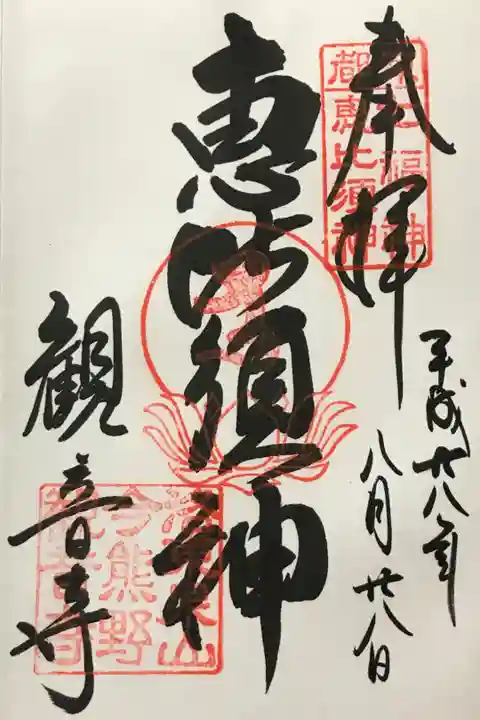 奉拝
都恵比須神
七福神
平成廿八年
八月廿八日
恵比須神
今熊野
観音寺
観音寺